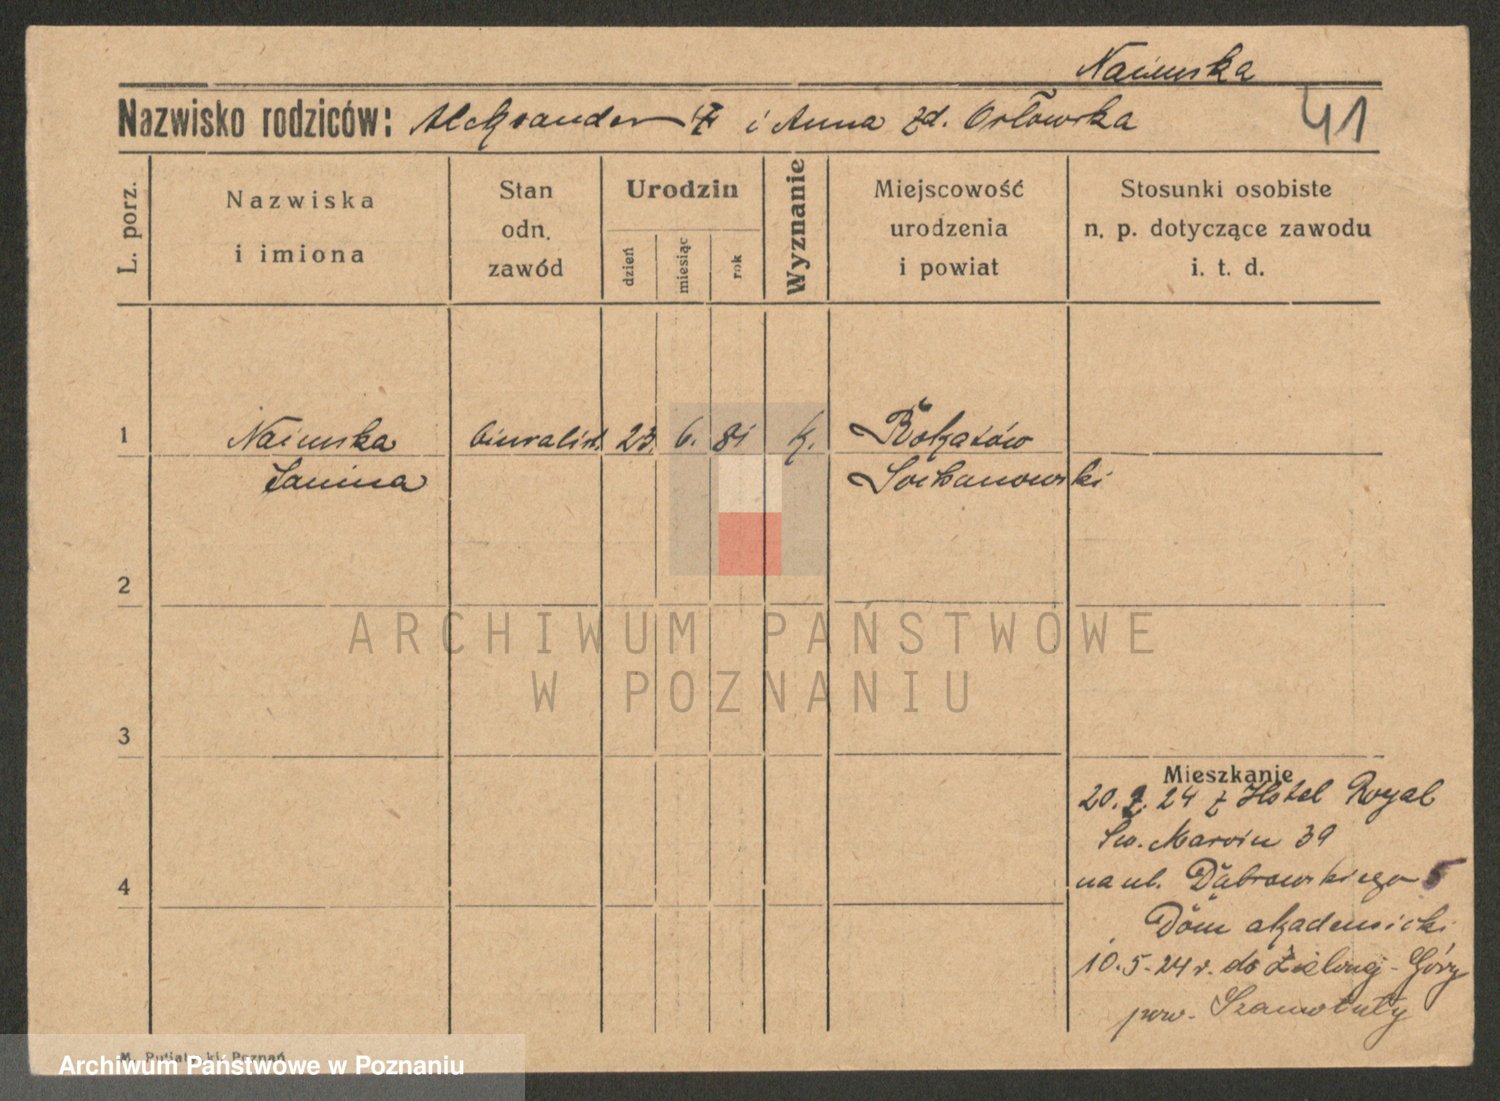 Naimska
Nazwisko rodziców: Aleksander i Anna zd. Orłowska
41
L. porz.
Nazwiska
i imiona
Stan
odn.
zawód
Urodzin
dzień
miesiąc
rok
Wyznanie
Miejscowość
urodzenia
i powiat
Stosunki osobiste
n. p. dotyczące zawodu
i. t. d.
1
Naimska biuralist. 23. 6. 81 k.
Janina
2
ARCHIWUM PAŃSTWOWE
W POZNANIU
3
4
Mieszkanie
20. 24 z Hotel Royal
Św. Marcin 39
na ul. Dąbrowskiego 5
Dom akademicki
10. 5. 24 r. do Zielonej-Góry
pow. Szamotuły
Poznań
Archiwum Państwowe w Poznaniu